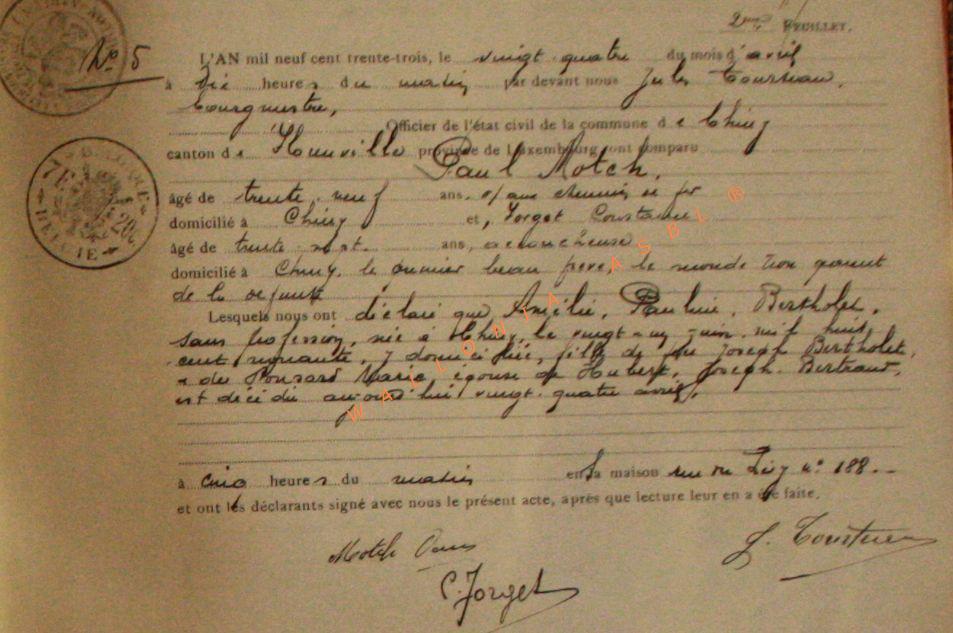 2me FEUILLET.
No 5
L'AN mil neuf cent trente-trois, le vingt quatre du mois d'avril
à dix heures du matin par devant nous Jules
bourgmestre,
Officier de l'état civil de la commune de Chiny
canton de province de Luxembourg ont comparu
Paul Motch,
âgé de trente neuf ans, aux chemin de fer
domicilié à Chiny et, Forget Constance
âgé de trente sept ans, accoucheuse
domicilié à Chiny, le premier beau frère, le non parent
de la défunte
Lesquels nous ont déclaré que Amélie, Pauline, Bertholet,
sans profession, née à Chiny, le vingt juin mil huit
cent nonante, y domiciliée, fille de feu Joseph Bertholet,
& de Ponsard Marie, épouse de Hubert, Joseph Bertrand,
est décédée aujourd'hui vingt quatre avril,
à cinq heures du matin en sa maison rue no 188
et ont les déclarants signé avec nous le présent acte, après que lecture leur en a été faite.
Motch
C. Forget
BELGIQUE
BELGIE
WALLONIA ASBL ®